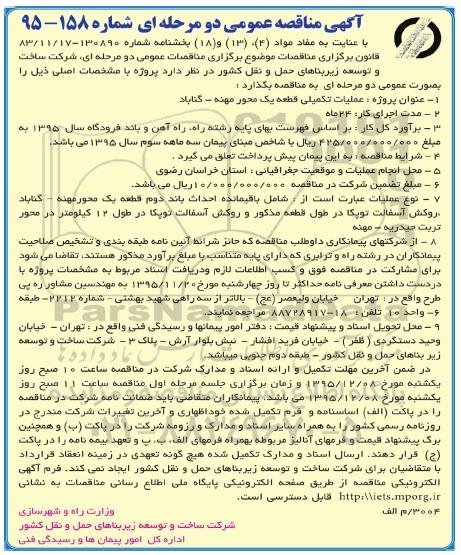 آگهی مناقصه عمومی دو مرحله ای شماره ۱۵۸-۹۵
با عنایت به مفاد مواد (۴)، (۱۳) و(۱۸) بخشنامه شماره ۱۳۰۸۹۰-۸۳/۱۱/۱۷
قانون برگزاری مناقصات موضوع برگزاری مناقصات عمومی دو مرحله ای، شرکت ساخت
و توسعه زیربناهای حمل و نقل کشور در نظر دارد پروژه با مشخصات اصلی ذیل را
بصورت عمومی دو مرحله ای به مناقصه بگذارد :
۱- عنوان پروژه : عملیات تکمیلی قطعه یک محور مهنه - گناباد
۲ - مدت اجرای کار : ۲۴ماه
۳ - برآورد کل کار : بر اساس فهرست بهای پایه رشته راه، راه آهن و باند فرودگاه سال ۱۳۹۵ به
مبلغ ۴۲۵/۰۰۰/۰۰۰/۰۰۰ ریال با شاخص مبنای پیمان سه ماهه سوم سال ۱۳۹۵می باشد.
۴ - شرایط مناقصه : به این پیمان پیش پرداخت تعلق می گیرد .
۵ - محل انجام عملیات و موقعیت جغرافیائی : استان خراسان رضوی
۶ - مبلغ تضمین شرکت در مناقصه ۱۰/۰۰۰/۰۰۰/۰۰۰ریال می باشد.
۷ - نوع عملیات عبارت است از : شامل باقیمانده احداث باند دوم قطعه یک محورمهنه - گناباد
،روکش آسفالت توپکا در طول قطعه مذکور و روکش آسفالت توپکا در طول ۱۲ کیلومتر در محور
تربت حیدریه - مهنه
۸ - از شرکتهای پیمانکاری داوطلب مناقصه که حائز شرائط آئین نامه طبقه بندی و تشخیص صلاحیت
پیمانکاران در رشته راه و ترابری که دارای پایه متناسب با مبلغ برآورد مذکور هستند، تقاضا می شود
برای مشارکت در مناقصه فوق و کسب اطلاعات لازم ودریافت اسناد مربوط به مشخصات پروژه با
دردست داشتن معرفی نامه حداکثر تا روز چهارشنبه مورخ ۱۳۹۵/۱۱/۲۰ به مهندسین مشاور ره پی
طرح واقع در : تهران - خیابان ولیعصر (عج) - بالاتر از سه راهی شهید بهشتی - شماره ۲۲۱۲- طبقه
۶- واحد ۱۰ تلفن : ۱۸-۸۸۷۲۸۹۱۷ مراجعه نمایند.
۹ - محل تحویل اسناد و پیشنهاد قیمت : دفتر امور پیمانها و رسیدگی فنی واقع در : تهران - خیابان
وحید دستگردی ( ظفر ) - خیابان فرید افشار - نبش بلوار آرش - پلاک ۳ - شرکت ساخت و توسعه
زیر بناهای حمل و نقل کشور - طبقه دوم جنوبی میباشد.
در ضمن آخرین مهلت تکمیل و ارائه اسناد و مدارک شرکت در مناقصه ساعت ۱۰ صبح روز
یکشنبه مورخ ۱۳۹۵/۱۲/۰۸ و زمان برگزاری جلسه مرحله اول مناقصه ساعت ۱۱ صبح روز
یکشنبه مورخ ۱۳۹۵/۱۲/۰۸ می باشد. پیمانکاران متقاضی باید ضمانت نامه شرکت در مناقصه
را در پاکت (الف) اساسنامه و فرم تکمیل شده خوداظهاری و آخرین تغییرات شرکت مندرج در
روزنامه رسمی کشور را به همراه سایر اسناد و مدارک و رزومه شرکت را در پاکت (ب) و همچنین
برگ پیشنهاد قیمت و فرمهای آنالیز مربوطه بهمراه فرمهای الف، ب، پ و تعهد بیمه نامه را در پاکت
(ج) قرار دهند. ارسال اسناد و مدارک تکمیل شده هیچ گونه تعهدی در زمینه انعقاد قرارداد
با متقاضیان برای شرکت ساخت و توسعه زیربناهای حمل و نقل کشور ایجاد نمی کند. فرم آگهی
الکترونیکی مناقصه از طریق صفحه الکترونیکی پایگاه ملی اطلاع رسانی مناقصات به نشانی
http:\\iets.mporg.ir قابل دسترسی است.
۳۰۰۴/م الف
وزارت راه و شهرسازی
شرکت ساخت و توسعه زیربناهای حمل و نقل کشور
اداره کل امور پیمان ها و رسیدگی فنی